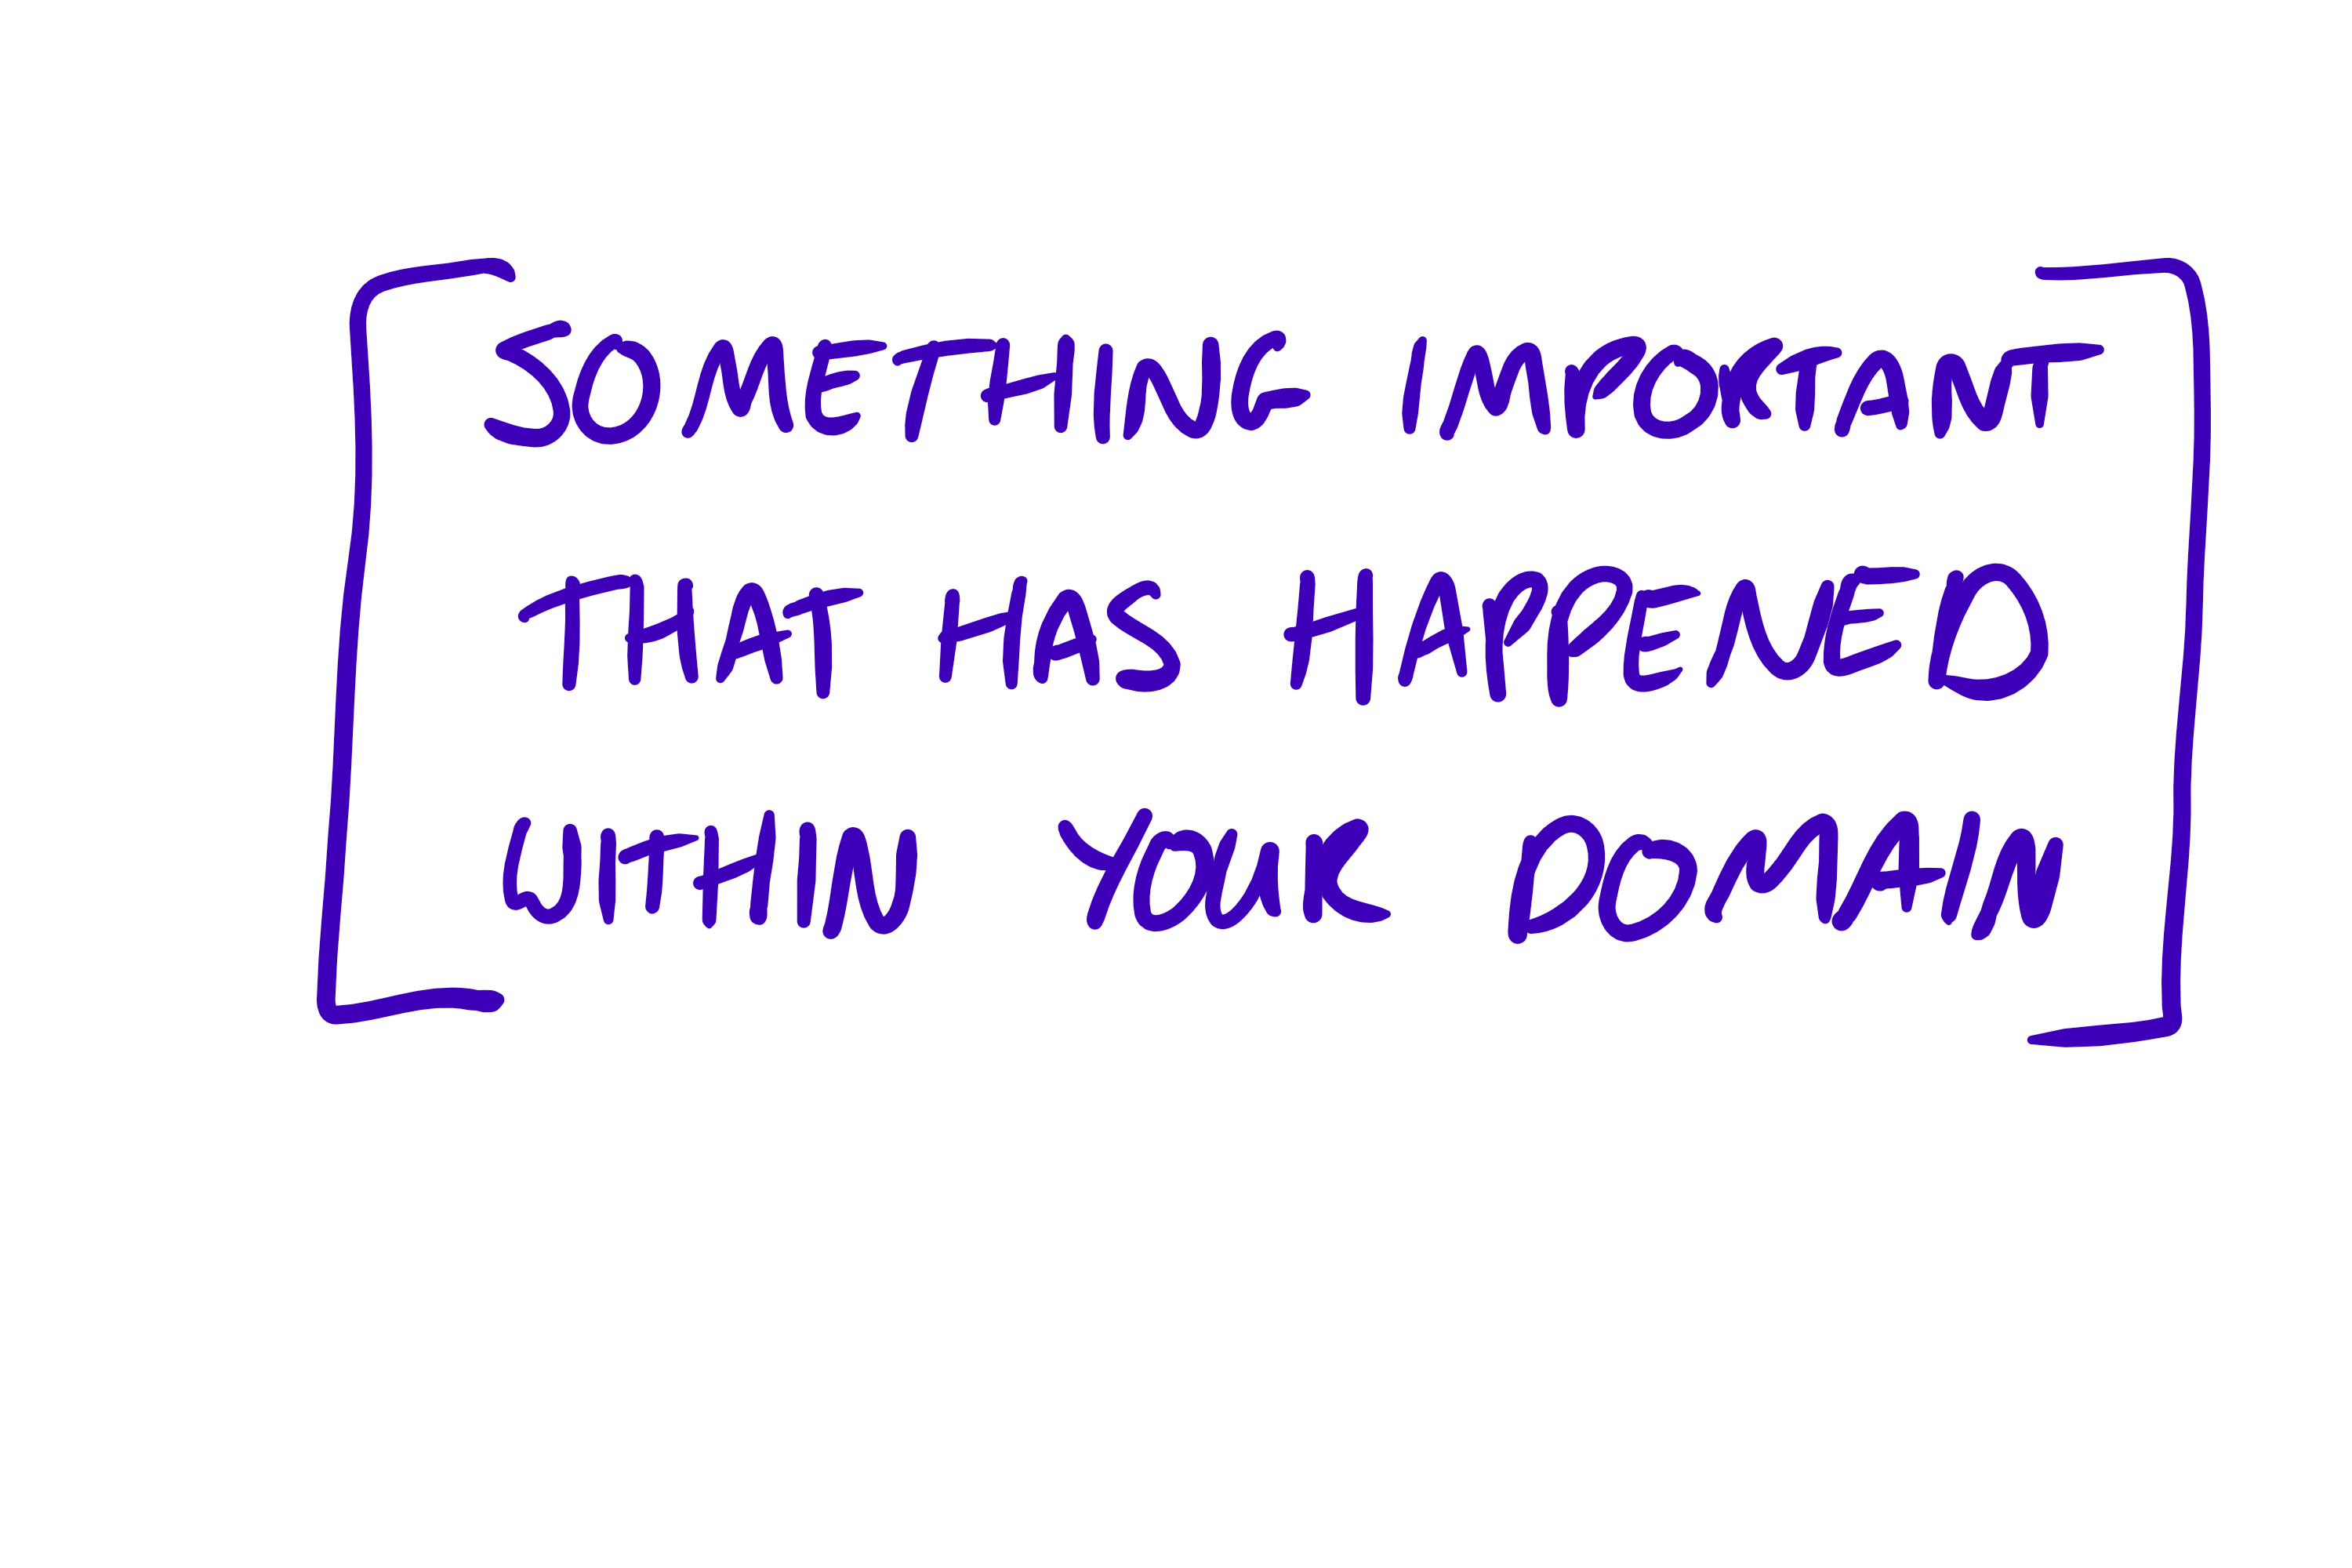 [SOMETHING IMPORTANT
THAT HAS HAPPENED
WITHIN YOUR DOMAIN]